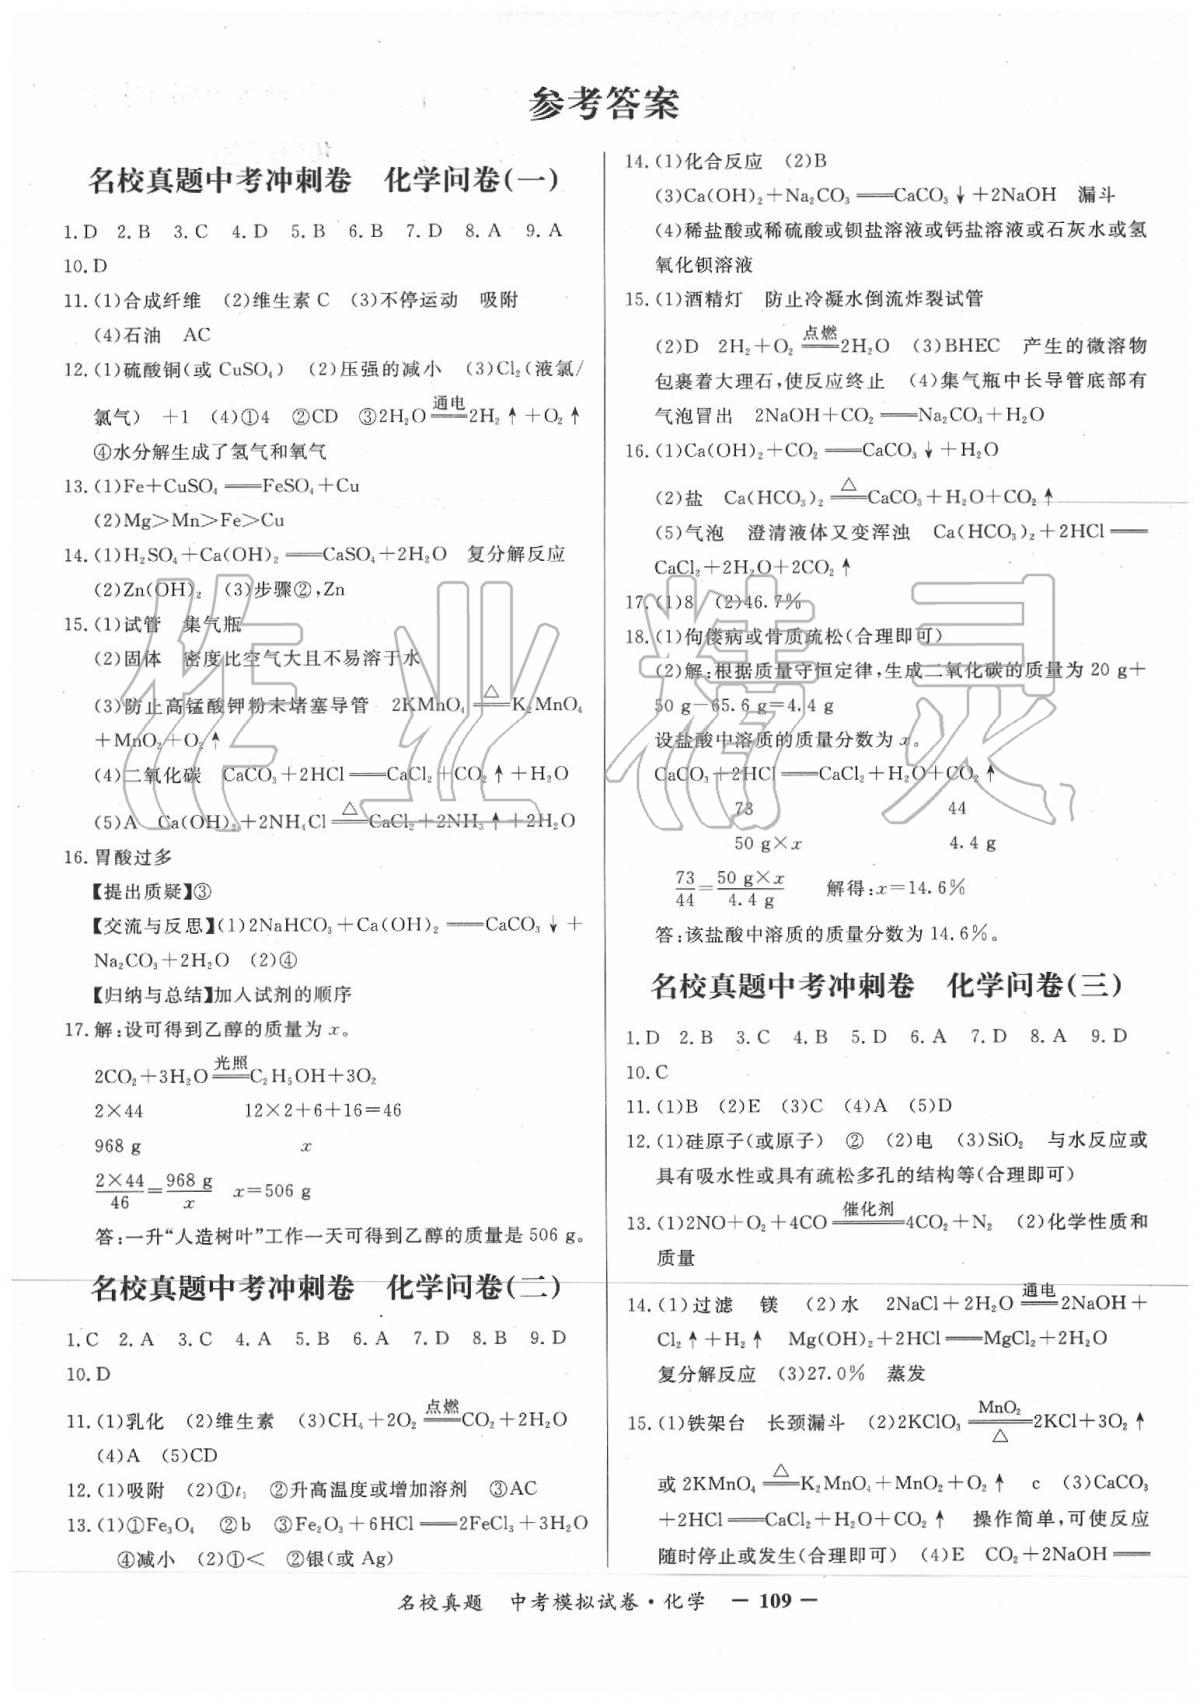 参考答案
名校真题中考冲刺卷　化学问卷(一)
1.D　2.B　3.C　4.D　5.B　6.B　7.D　8.A　9.A
10.D
11.(1)合成纤维　(2)维生素C　(3)不停运动　吸附
(4)石油　AC
12.(1)硫酸铜(或CuSO₄)　(2)压强的减小　(3)Cl₂(液氯/
氯气)　+1　(4)①4　②CD　③2H₂O══通电══2H₂↑+O₂↑
④水分解生成了氢气和氧气
13.(1)Fe+CuSO₄══FeSO₄+Cu
(2)Mg>Mn>Fe>Cu
14.(1)H₂SO₄+Ca(OH)₂══CaSO₄+2H₂O　复分解反应
(2)Zn(OH)₂　(3)步骤②,Zn
15.(1)试管　集气瓶
(2)固体　密度比空气大且不易溶于水
(3)防止高锰酸钾粉末堵塞导管　2KMnO₄══△══K₂MnO₄
+MnO₂+O₂↑
(4)二氧化碳　CaCO₃+2HCl══CaCl₂+CO₂↑+H₂O
(5)A　Ca(OH)₂+2NH₄Cl══△══CaCl₂+2NH₃↑+2H₂O
16.胃酸过多
【提出质疑】③
【交流与反思】(1)2NaHCO₃+Ca(OH)₂══CaCO₃↓+
Na₂CO₃+2H₂O　(2)④
【归纳与总结】加入试剂的顺序
17.解:设可得到乙醇的质量为x。
2CO₂+3H₂O══光照══C₂H₅OH+3O₂
2×44　12×2+6+16=46
968 g　x
2×44/46=968 g/x　x=506 g
答:一升“人造树叶”工作一天可得到乙醇的质量是506 g。
名校真题中考冲刺卷　化学问卷(二)
1.C　2.A　3.C　4.A　5.B　6.A　7.D　8.B　9.D
10.D
11.(1)乳化　(2)维生素　(3)CH₄+2O₂══点燃══CO₂+2H₂O
(4)A　(5)CD
12.(1)吸附　(2)①t₁　②升高温度或增加溶剂　③AC
13.(1)①Fe₃O₄　②b　③Fe₂O₃+6HCl══2FeCl₃+3H₂O
④减小　(2)①<　②银(或Ag)
14.(1)化合反应　(2)B
(3)Ca(OH)₂+Na₂CO₃══CaCO₃↓+2NaOH　漏斗
(4)稀盐酸或稀硫酸或钡盐溶液或钙盐溶液或石灰水或氢
氧化钡溶液
15.(1)酒精灯　防止冷凝水倒流炸裂试管
(2)D　2H₂+O₂══点燃══2H₂O　(3)BHEC　产生的微溶物
包裹着大理石,使反应终止　(4)集气瓶中长导管底部有
气泡冒出　2NaOH+CO₂══Na₂CO₃+H₂O
16.(1)Ca(OH)₂+CO₂══CaCO₃↓+H₂O
(2)盐　Ca(HCO₃)₂══△══CaCO₃+H₂O+CO₂↑
(5)气泡　澄清液体又变浑浊　Ca(HCO₃)₂+2HCl══
CaCl₂+2H₂O+2CO₂↑
17.(1)8　(2)46.7%
18.(1)佝偻病或骨质疏松(合理即可)
(2)解:根据质量守恒定律,生成二氧化碳的质量为20 g+
50 g-65.6 g=4.4 g
设盐酸中溶质的质量分数为x。
CaCO₃+2HCl══CaCl₂+H₂O+CO₂↑
73　44
50 g×x　4.4 g
73/44=50 g×x/4.4 g　解得:x=14.6%
答:该盐酸中溶质的质量分数为14.6%。
名校真题中考冲刺卷　化学问卷(三)
1.D　2.B　3.C　4.B　5.D　6.A　7.D　8.A　9.D
10.C
11.(1)B　(2)E　(3)C　(4)A　(5)D
12.(1)硅原子(或原子)　②　(2)电　(3)SiO₂　与水反应或
具有吸水性或具有疏松多孔的结构等(合理即可)
13.(1)2NO+O₂+4CO══催化剂══4CO₂+N₂　(2)化学性质和
质量
14.(1)过滤　镁　(2)水　2NaCl+2H₂O══通电══2NaOH+
Cl₂↑+H₂↑　Mg(OH)₂+2HCl══MgCl₂+2H₂O
复分解反应　(3)27.0%　蒸发
15.(1)铁架台　长颈漏斗　(2)2KClO₃══MnO₂/△══2KCl+3O₂↑
或2KMnO₄══△══K₂MnO₄+MnO₂+O₂↑　c　(3)CaCO₃
+2HCl══CaCl₂+H₂O+CO₂↑　操作简单,可使反应
随时停止或发生(合理即可)　(4)E　CO₂+2NaOH══
名校真题　中考模拟试卷·化学　— 109 —
作业精灵